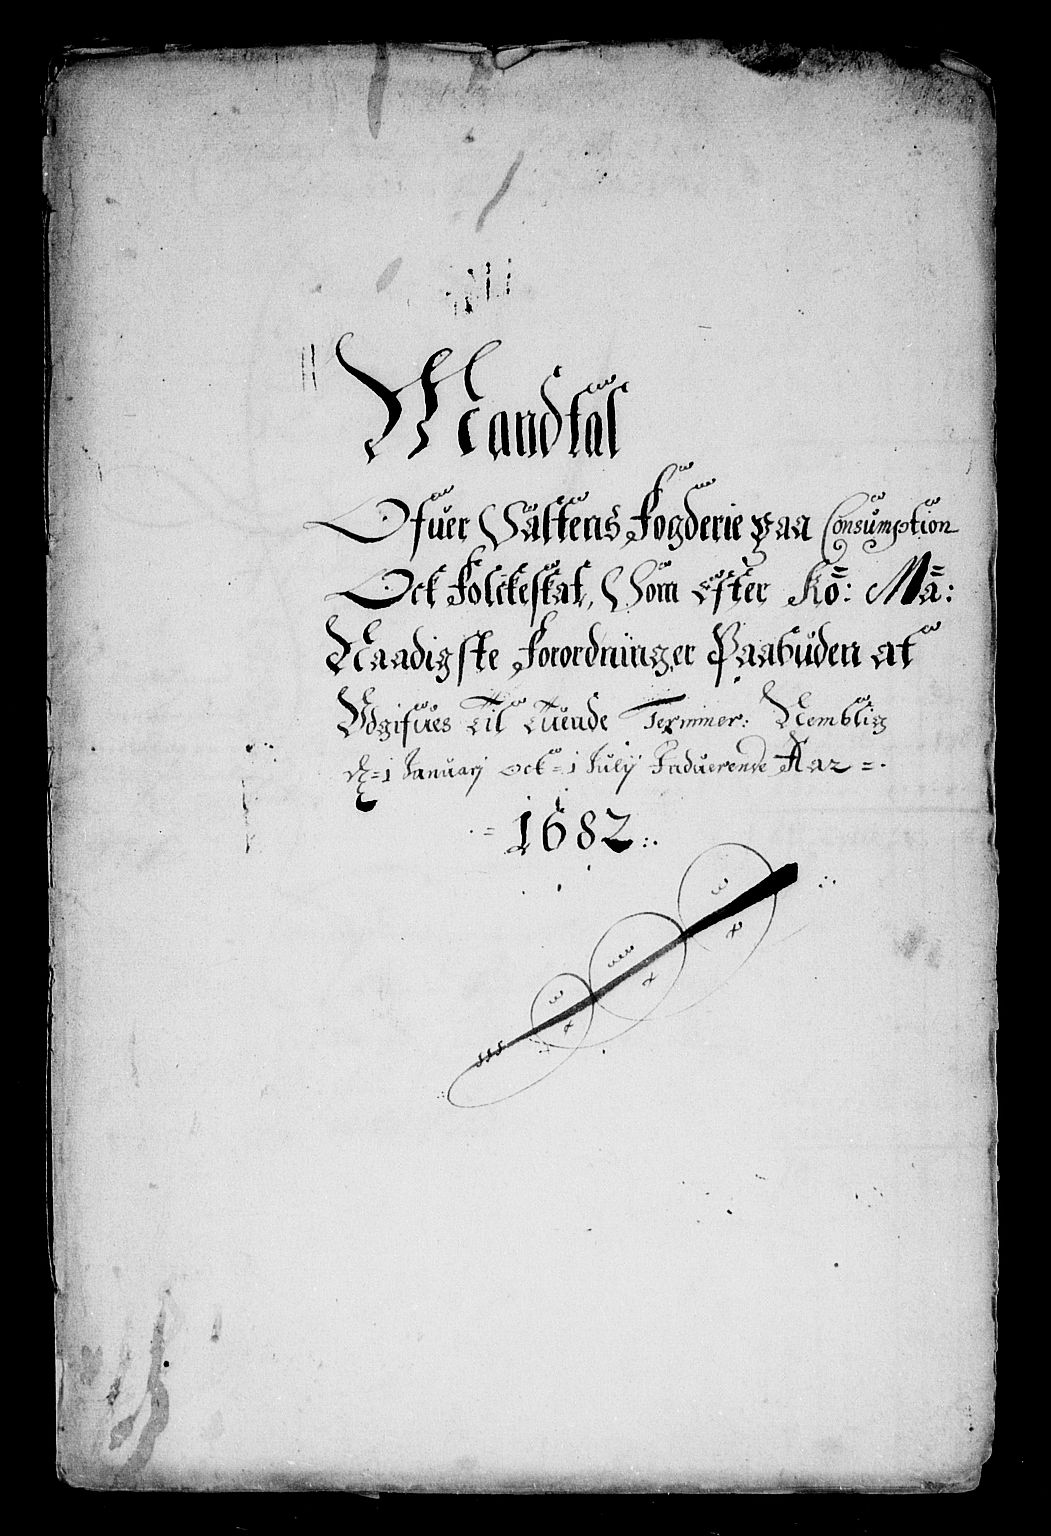 Mandtal
Ofuer Saltens Fogderie paa Consumption
Ock Folckeskat, Som efter Ko: Ma:
Naadigste Forordninger Paabuden at
Udgifues Til Tuende Terminer: Nemblig
d = 1 Januarj ock = 1 Julij Indeuerende Aar =.
= 1682 :.